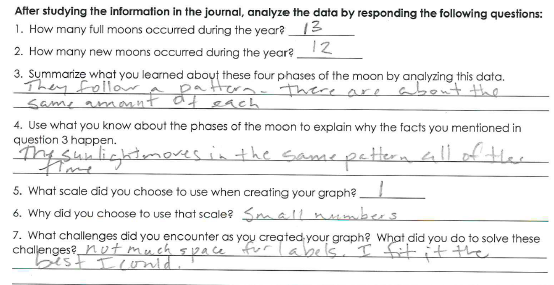 After studying the information in the journal, analyze the data by responding the following questions:
1. How many full moons occurred during the year? 13
2. How many new moons occurred during the year? 12
3. Summarize what you learned about these four phases of the moon by analyzing this data.
They follow a pattern. There are about the
same amount of each
4. Use what you know about the phases of the moon to explain why the facts you mentioned in
question 3 happen.
The sunlight moves in the same pattern all of the
time
5. What scale did you choose to use when creating your graph? 1
6. Why did you choose to use that scale? Small numbers
7. What challenges did you encounter as you created your graph? What did you do to solve these
challenges? not much space for labels. I fit it the
best I could.